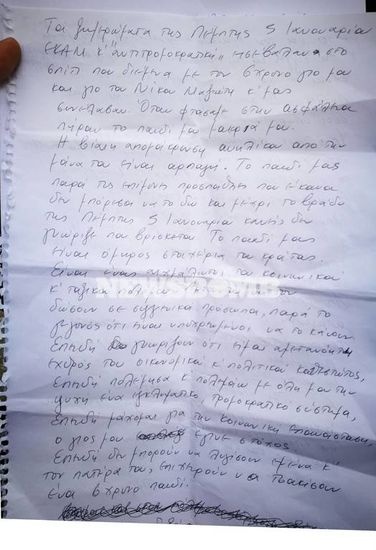 Τα ξημερώματα της Πέμπτης 5 Ιανουαρίου
ΕΚΑΜ κ' "αντιτρομοκρατική" εισέβαλαν στο
σπίτι που διέμενα με τον 6χρονο γιο μου
και γιο του Νίκου Μαζιώτη κ' μας
συνέλαβαν. Όταν φτάσαμε στην ασφάλεια
πήραν το παιδί μου μακριά μου.
Η βίαιη απομάκρυνση ανηλίκου από την
μάνα του είναι αρπαγή. Το παιδί μας
παρά τις επίμονες προσπάθειες που έκανα
δεν μπόρεσα να το δω και μέχρι το βράδυ
της Πέμπτης 5 Ιανουαρίου κανείς δεν
γνώριζε που βρίσκεται. Το παιδί μας
είναι όμηρος στα χέρια του κράτους.
Είναι ένας αιχμάλωτος του κοινωνικού
κ' ταξικού
NEWSBOMB
δώσουν σε συγγενικά πρόσωπα, παρά το
γεγονός ότι είναι υποχρεωμένοι να το κάνουν.
Επειδή γνωρίζουν ότι είμαι αμετανόητη
εχθρός του οικονομικού κ' πολιτικού καθεστώτος,
επειδή πολέμησα κ' πολεμάω με όλη μου την
ψυχή ένα εγκληματικό, τρομοκρατικό σύστημα,
επειδή μάχομαι για την κοινωνική Επανάσταση,
ο γιος μου έγινε στόχος.
Επειδή δεν μπορούν να λυγίσουν εμένα κ'
τον πατέρα του επιχειρούν να τσακίσουν
ένα 6χρονο παιδί.